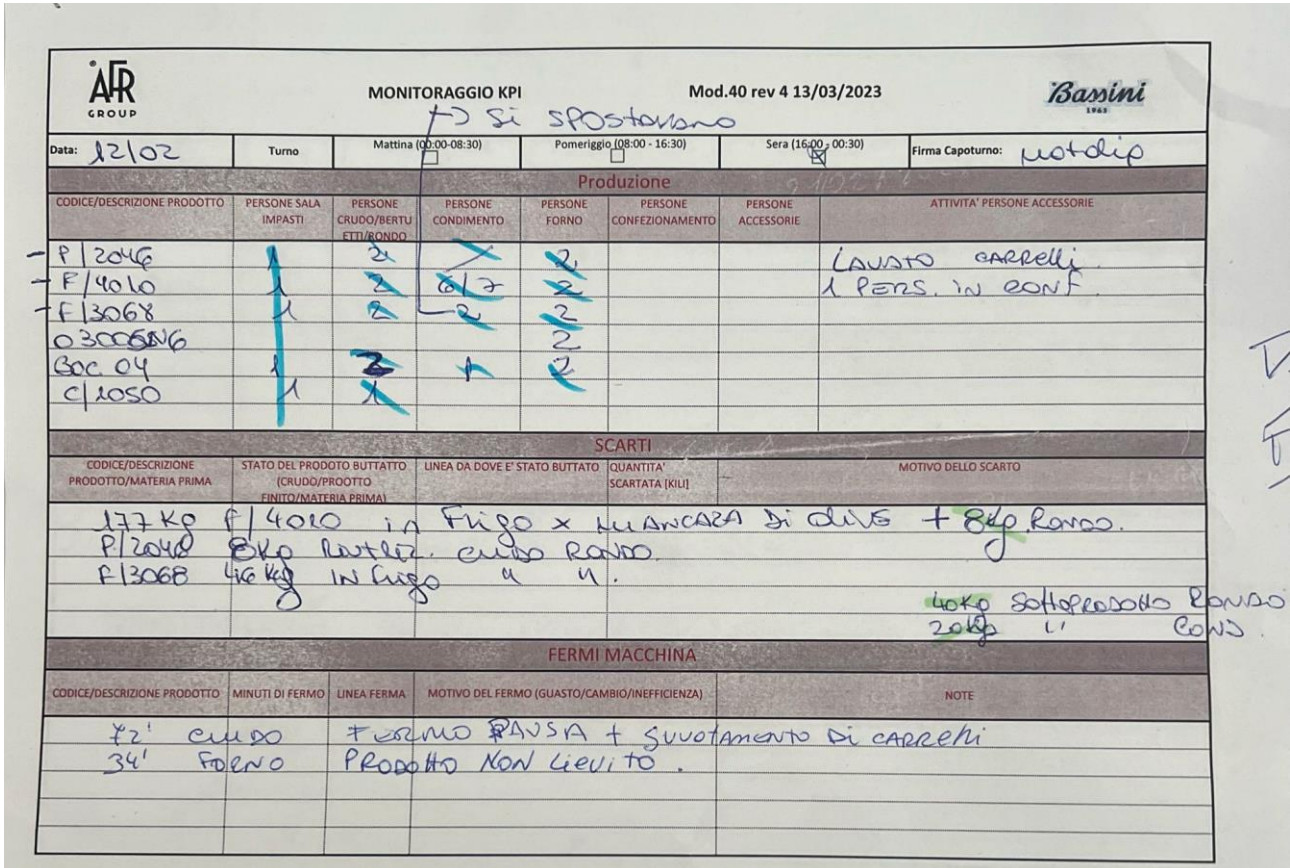 AFR
GROUP
MONITORAGGIO KPI
Mod.40 rev 4 13/03/2023
Bassini
1963
Si SPOStavano
Data: 12/02
Turno
Mattina (00:00-08:30)
Pomeriggio (08:00 - 16:30)
Sera (16:00 - 00:30)
Firma Capoturno:
Produzione
CODICE/DESCRIZIONE PRODOTTO
PERSONE SALA IMPASTI
PERSONE CRUDO/BERTUETTI/RONDO
PERSONE CONDIMENTO
PERSONE FORNO
PERSONE CONFEZIONAMENTO
PERSONE ACCESSORIE
ATTIVITA' PERSONE ACCESSORIE
P/2046 1 2 / 2 LAVATO CARRELLi
F/4010 1 2 6/7 2 1 PERS. IN CONF.
F/3068 1 2 2 2
2
BOC 04 1 2 1 2
C/1050 1 1
SCARTI
CODICE/DESCRIZIONE PRODOTTO/MATERIA PRIMA
STATO DEL PRODOTO BUTTATTO (CRUDO/PROOTTO FINITO/MATERIA PRIMA)
LINEA DA DOVE E' STATO BUTTATO
QUANTITA' SCARTATA [KILI]
MOTIVO DELLO SCARTO
177 Kg F/4010 in Frigo x MANCAZA Di OLIVE + 8Kg RONDO.
8Kg CRUDO RONDO.
F/3068 46 Kg IN Frigo " ".
40Kg SOttOPRODOttO RONDO
20Kg " COND.
FERMI MACCHINA
CODICE/DESCRIZIONE PRODOTTO
MINUTI DI FERMO
LINEA FERMA
MOTIVO DEL FERMO (GUASTO/CAMBIO/INEFFICIENZA)
NOTE
72' CRUDO FERMO PAUSA + SVUOTAMENTO Di CARRELLi
34' FORNO PRODOttO NON LIEVITO.